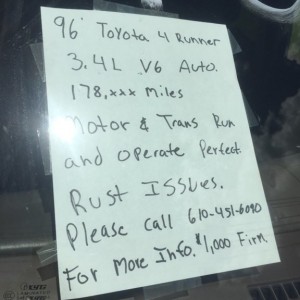 96' Toyota 4 Runner
3.4L V6 Auto.
178,xxx Miles
Motor & Trans Run
and operate Perfect.
Rust Issues.
Please call 610-451-6090
For More Info. $1,000 Firm